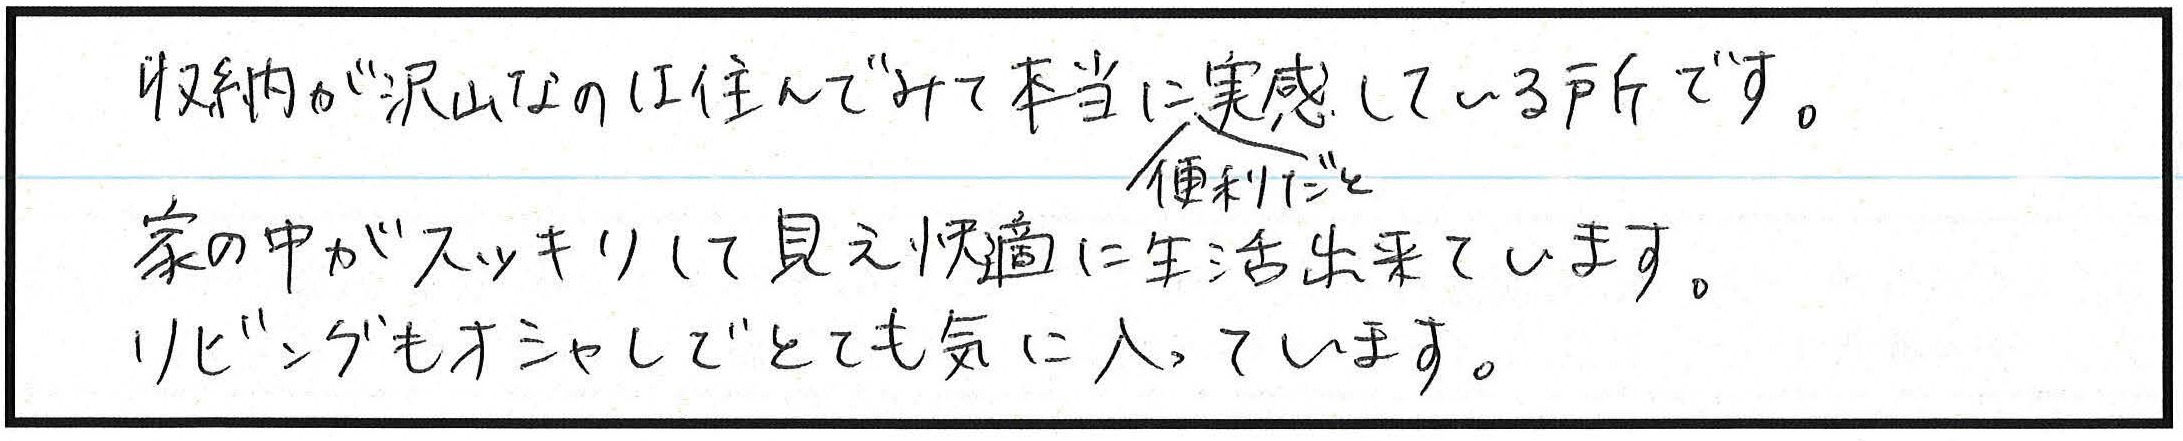 収納が沢山なのは住んでみて本当に実感している所です。
便利だと
家の中がスッキリして見え快適に生活出来ています。
リビングもオシャレでとても気に入っています。